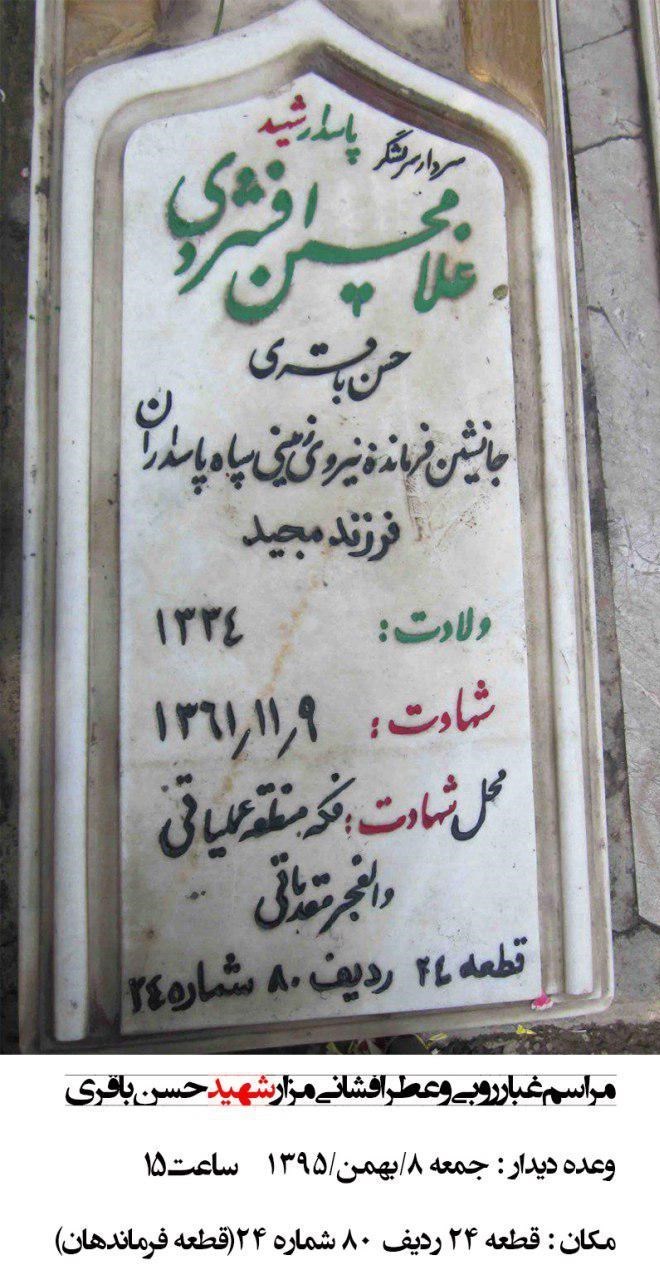 سردار سرلشگر پاسدار شهید
غلامحسین افشردی
حسن باقری
جانشین فرمانده نیروی زمینی سپاه پاسداران
فرزند مجید
ولادت: ۱۳۳٤
شهادت: ۱۳٦۱٫۱۱٫۹
محل شهادت: فکه منطقه عملیاتی
والفجر مقدماتی
قطعه ۲٤ ردیف ۸۰ شماره ۲٤
مراسم غبارروبی و عطر افشانی مزار شهید حسن باقری
وعده دیدار : جمعه ۸/بهمن/۱۳۹۵ ساعت ۱۵
مکان : قطعه ۲۴ ردیف ۸۰ شماره ۲۴(قطعه فرماندهان)